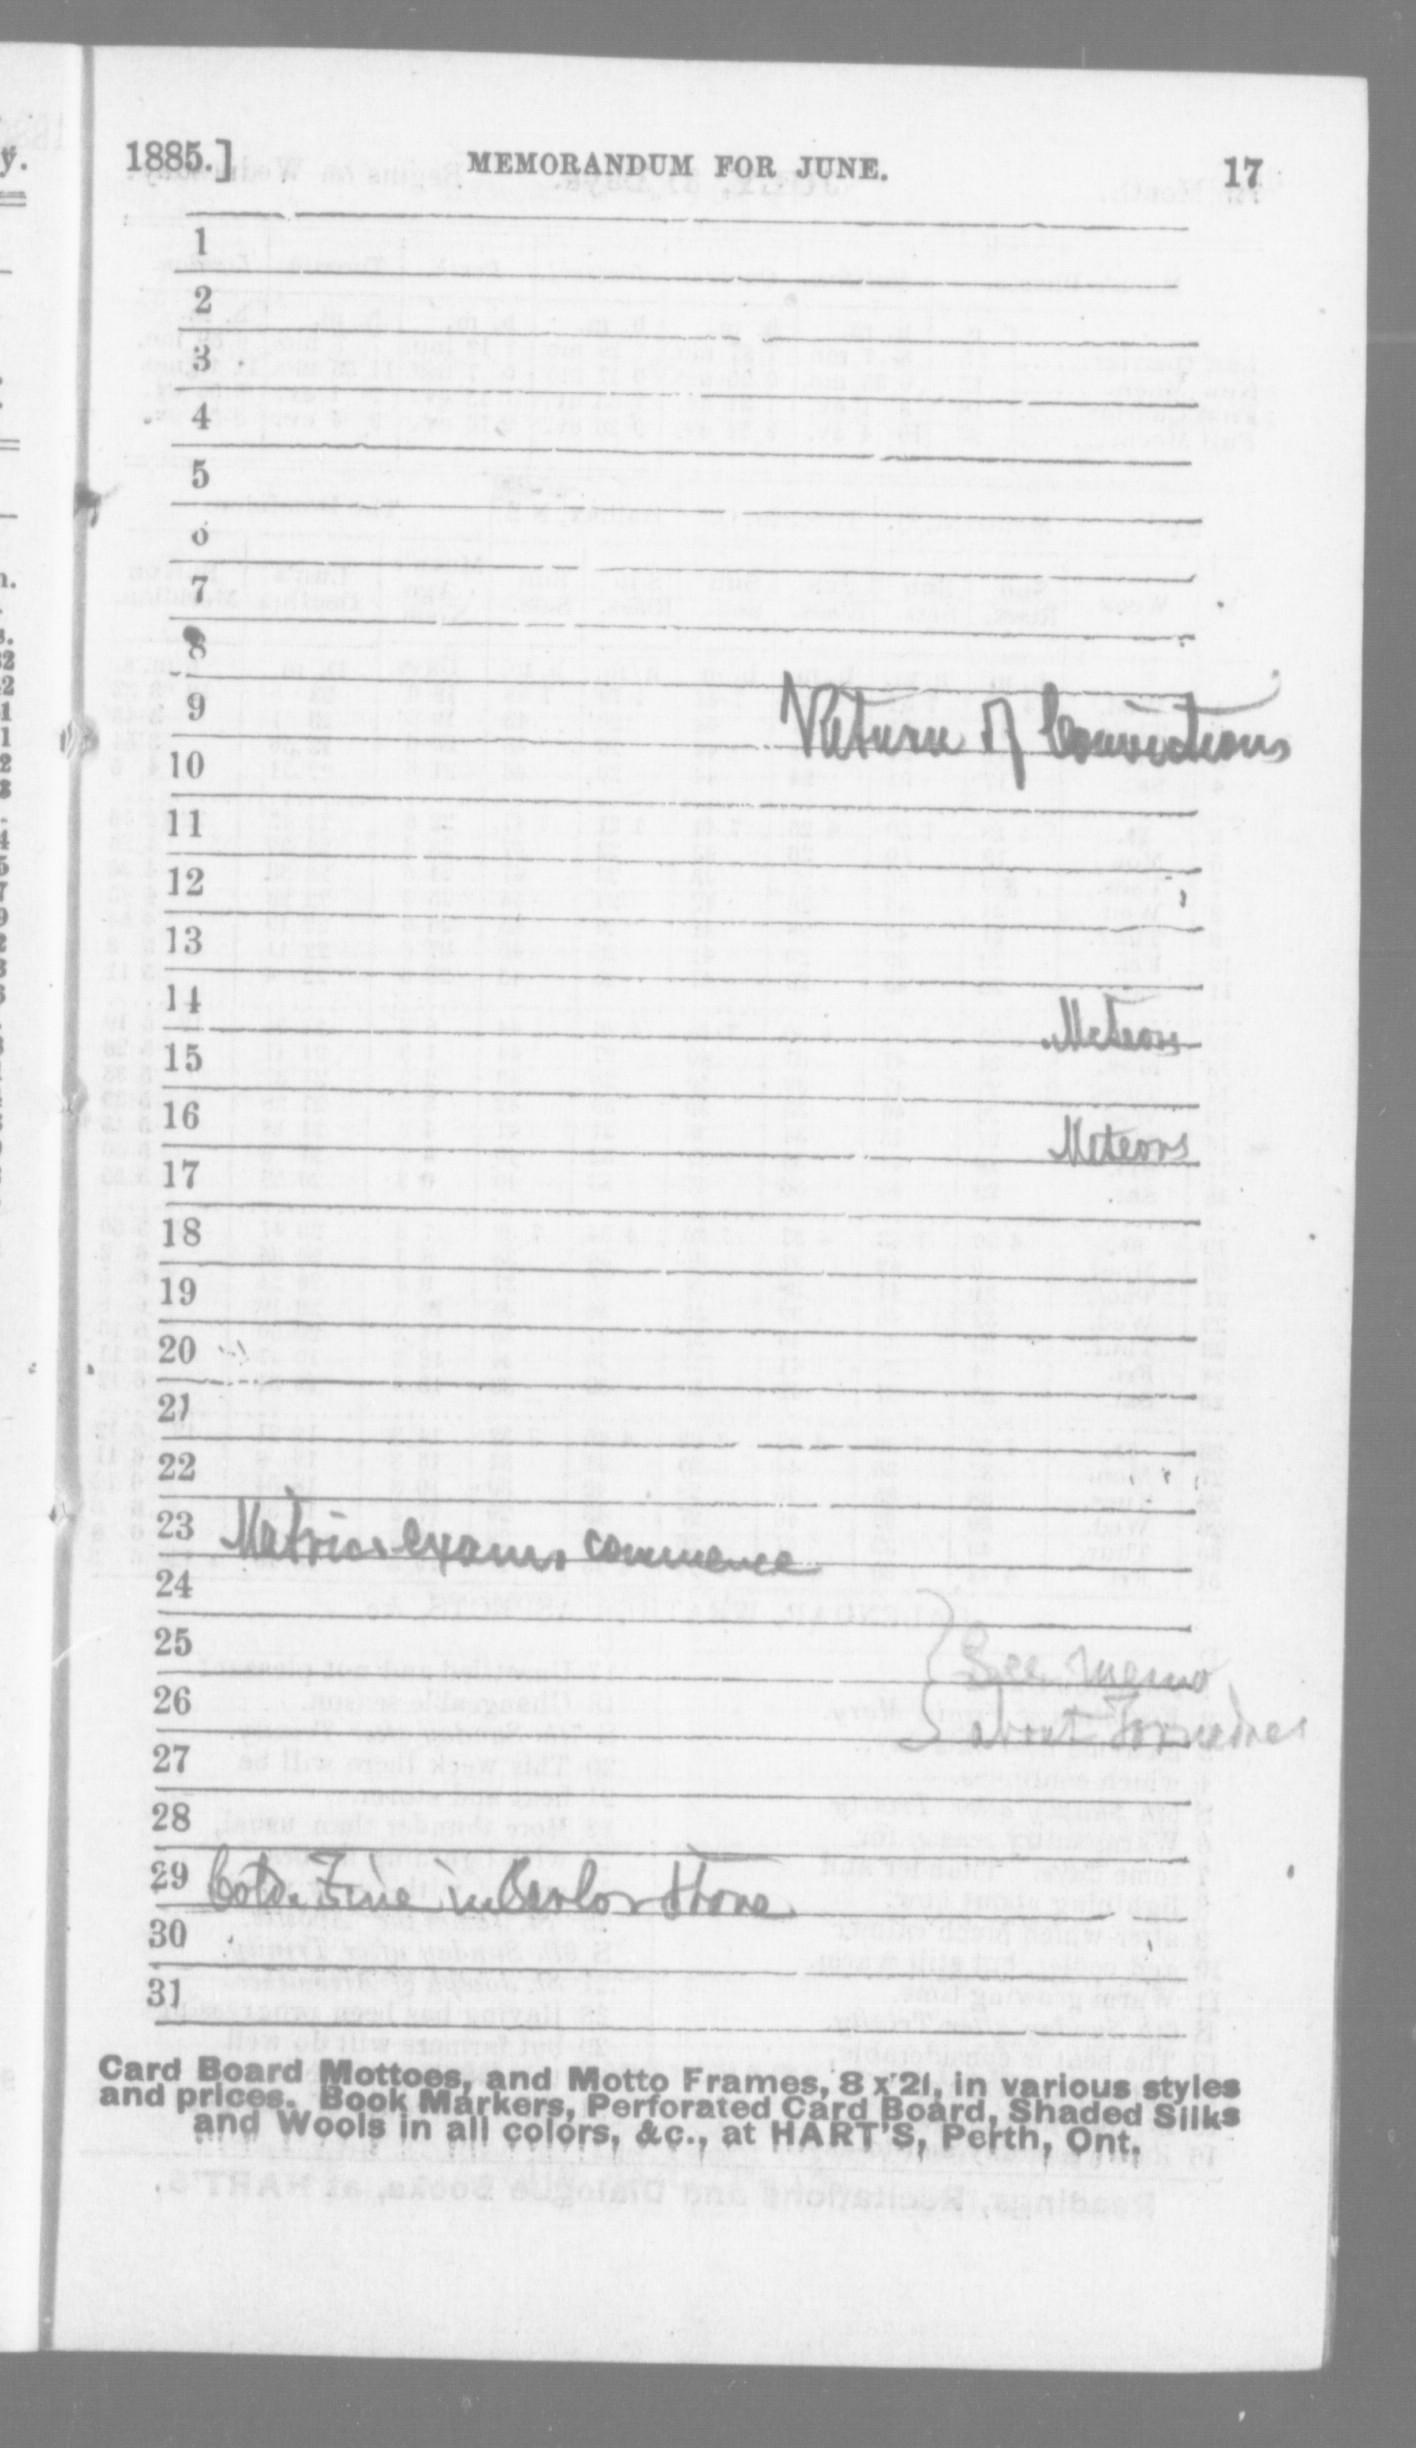 1885.] MEMORANDUM FOR JUNE. 17
1
2
3
4
5
6
7
8
9 Return of Convictions
10
11
12
13
14 Meteors
15
16 Meteors
17
18
19
20
21
22
23 Matric. exams commence
24
25 See memo
26 about
27
28
29 Cold. Fire in Parlor Stove
30
31
Card Board Mottoes, and Motto Frames, 8 x 21, in various styles
and prices. Book Markers, Perforated Card Board, Shaded Silks
and Wools in all colors, &c., at HART'S, Perth, Ont.